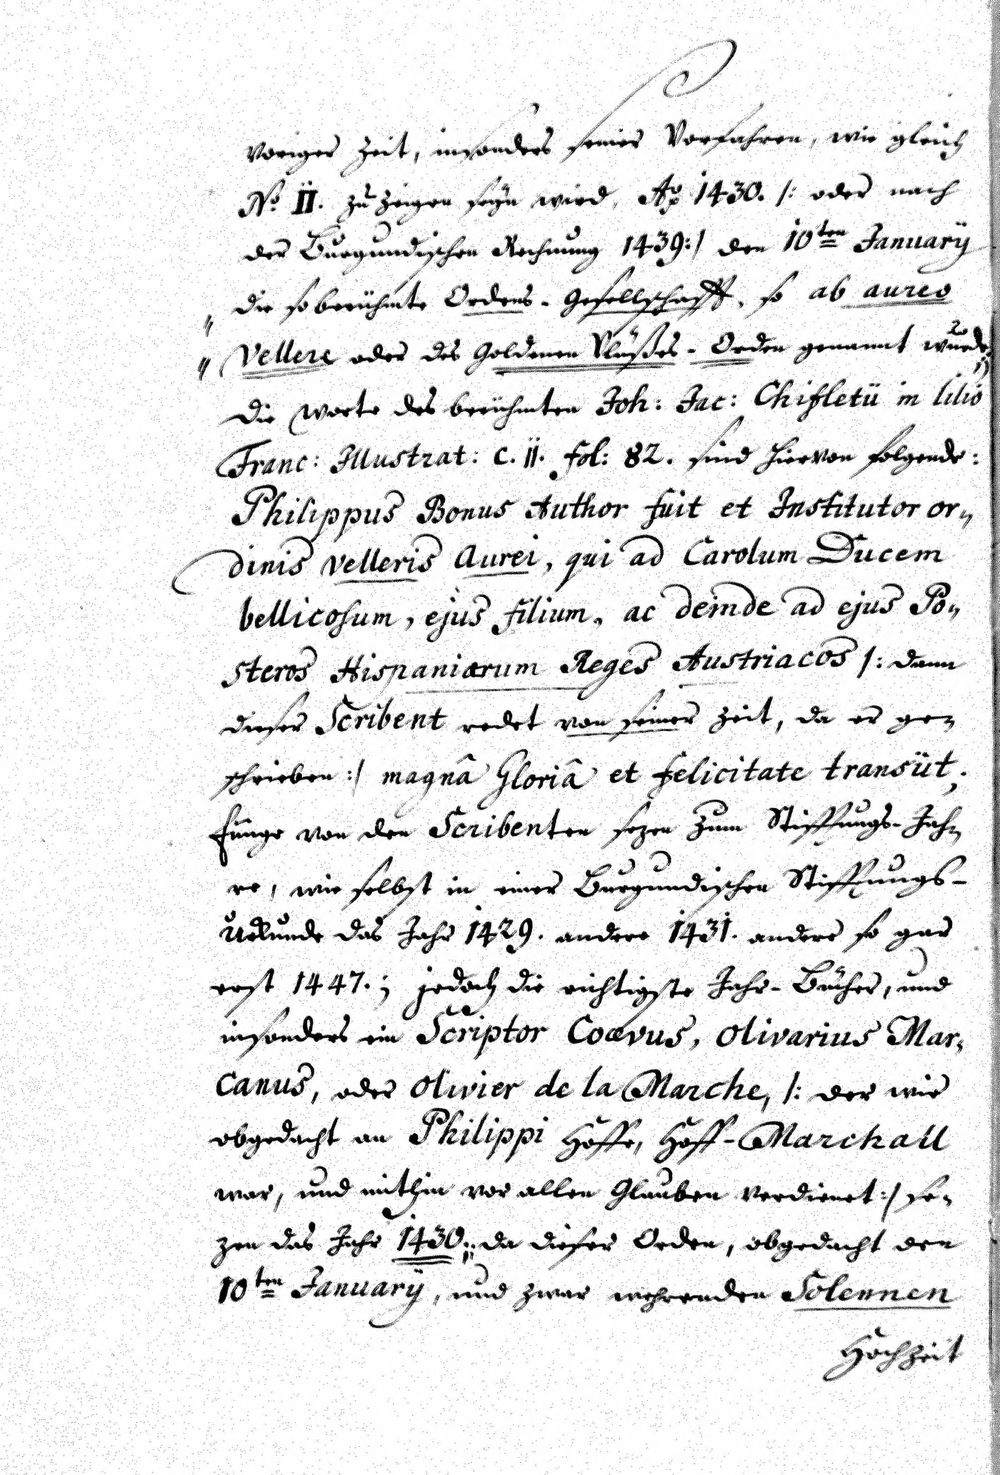 voriger Zeit, insonders seiner Vorfahren, wie gleich
N.º II. zu zeigen seÿn wird, Aº 1430. /: oder nach
der Burgundischen Rechnung 1439:/ den 10ten Januarÿ
die so berühmte Ordens-Gesellschafft, so ab aureo
Vellere oder des Goldenen Vlüßes-Orden genannt wurde;
die Worte des berühmten Joh: Jac: Chifletÿ in lilio
Franc: Illustrat: c. ii. fol: 82. sind hiervon folgende:
Philippus Bonus Author fuit et Institutor or„
dinis velleris Aurei, qui ad Carolum Ducem
bellicosum, ejus filium, ac deinde ad ejus Po„
steros Hispaniarum Reges Austriacos /: dann
dieser Scribent redet von seiner Zeit, da er ge„
schrieben :/ magnâ Gloriâ et felicitate transiit;
Einige von den Scribenten sezen zum Stifftungs-Jah„
re, wie selbst in einer Burgundischen Stifftungs-
Urkunde das Jahr 1429. andere 1431. andere so gar
erst 1447.; jedoch die richtigste Jahr-Bücher, und
insonders ein Scriptor Coævus, Olivarius Mar„
canus, oder Olivier de la Marche, /: der wie
obgedacht an Philippi Hoffe, Hoff-Marchall
war, und mithin vor allen Glauben verdienet :/ se„
zen das Jahr 1430.; da dieser Orden, obgedacht den
10ten Januarÿ, und zwar wehrenden Solennen
Hochzeit